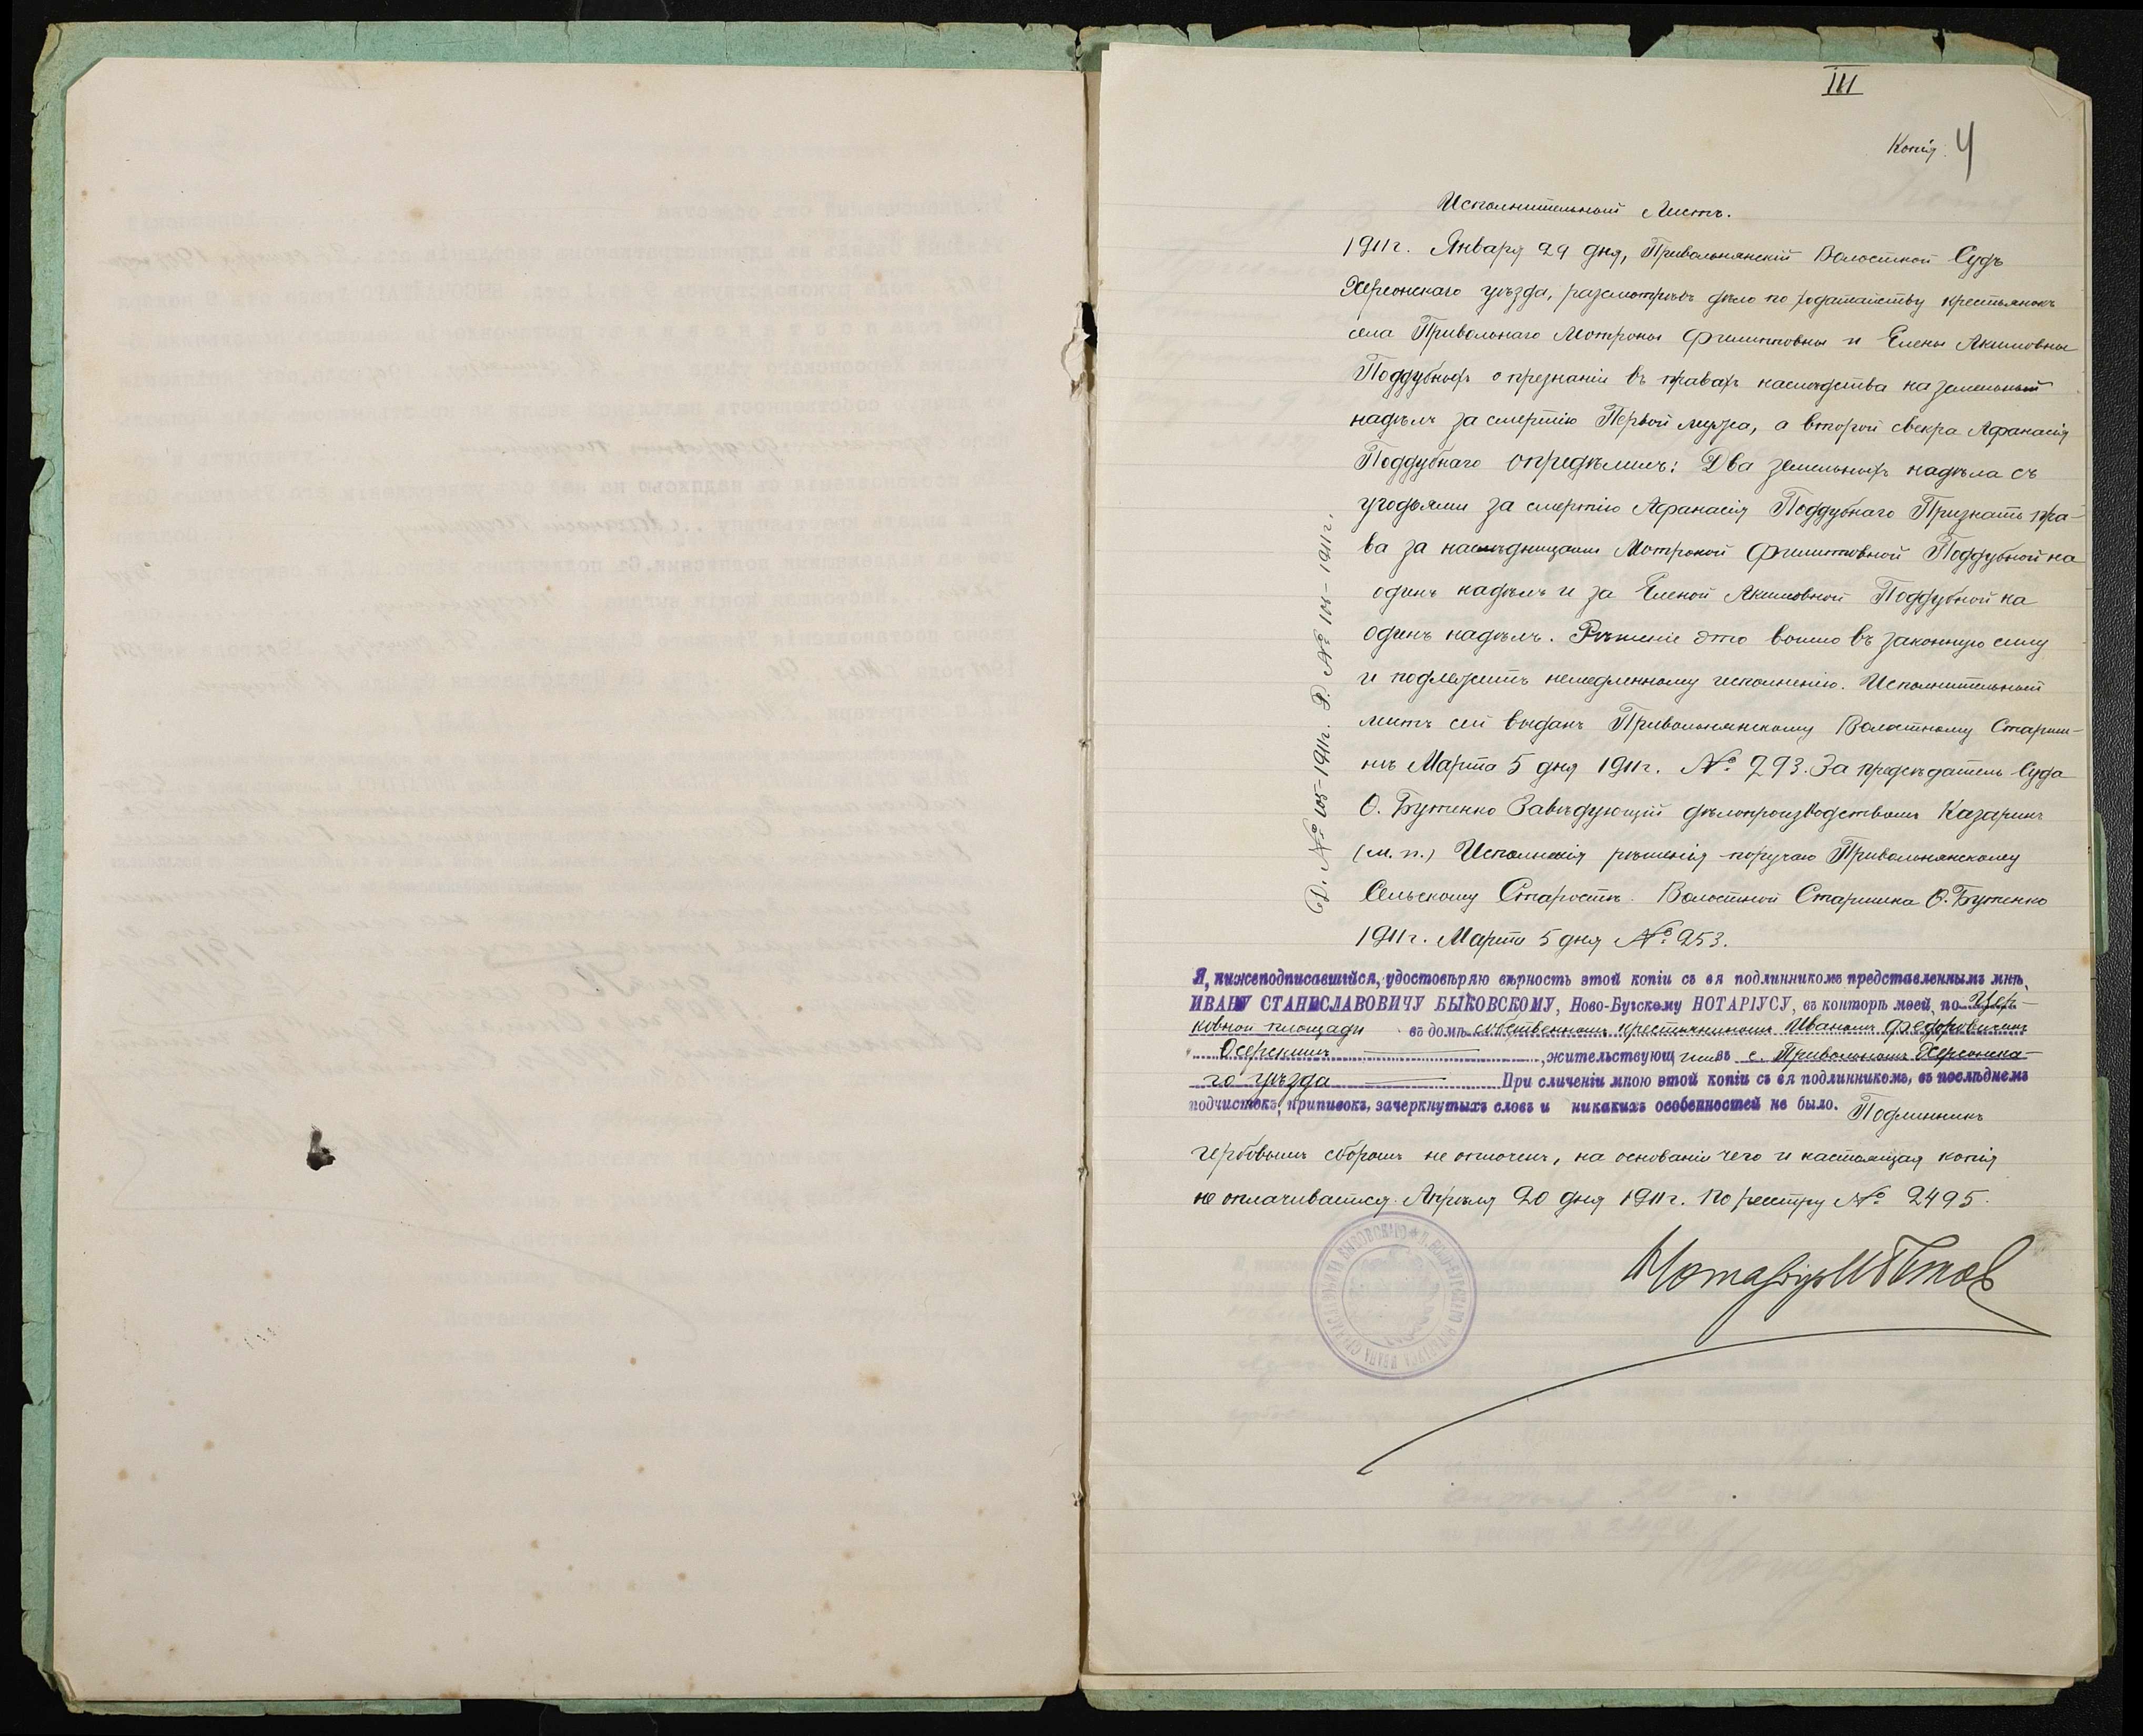 III
Копія. 4
Исполнительный Листъ.
1911г. Января 29 дня, Привольнянскій Волостной Судъ
Херсонскаго уѣзда, разсмотрѣвъ дѣло по ходатайству крестьянокъ
села Привольнаго Мотроны Филипповны и Елены Акимовны
Поддубныхъ о признаніи въ правахъ наслѣдства на земельный
надѣлъ за смертію Первой мужа, а второй свекра Афанасія
Поддубнаго опредѣлилъ: Два земельныхъ надѣла съ
угодьями за смертію Афанасія Поддубнаго Признать пра-
ва за наслѣдницами Мотроной Филипповной Поддубной на
одинъ надѣлъ и за Еленой Акимовной Поддубной на
одинъ надѣлъ. Рѣшеніе это вошло въ законную силу
и подлежитъ немедленному исполненію. Исполнительный
листъ сей выданъ Привольнянскому Волостному Старши-
нѣ Марта 5 дня 1911г. № 293. За предсѣдатель Суда
О. Бутенко Завѣдующій дѣлопроизводствомъ Казаринъ
(м.п.) Исполненія рѣшенія поручаю Привольнянскому
Сельскому Старостѣ. Волостной Старшина О. Бутенко
1911г. Марта 5 дня № 253.
Д. № 105-1911г. Р. № 105-1911г.
Я, нижеподписавшійся, удостовѣряю вѣрность этой копіи съ ея подлинникомъ представленнымъ мнѣ,
ИВАНУ СТАНИСЛАВОВИЧУ БЫКОВСКОМУ, Ново-Бугскому НОТАРІУСУ, въ конторѣ моей, по Цер-
ковной площади въ домѣ собственномъ крестьяниномъ Иваномъ Федоровичемъ
Осерскимъ, жительствующимъ въ с. Привольномъ Херсонска-
го уѣзда При сличеніи мною этой копіи съ ея подлинникомъ, въ послѣднемъ
подчистокъ, приписокъ, зачеркнутыхъ словъ и никакихъ особенностей не было. Подлинникъ
гербовымъ сборомъ не оплоченъ, на основаніи чего и настоящая копія
не оплачивается. Апрѣля 20 дня 1911г. По реестру № 2495.
Нотаріусъ